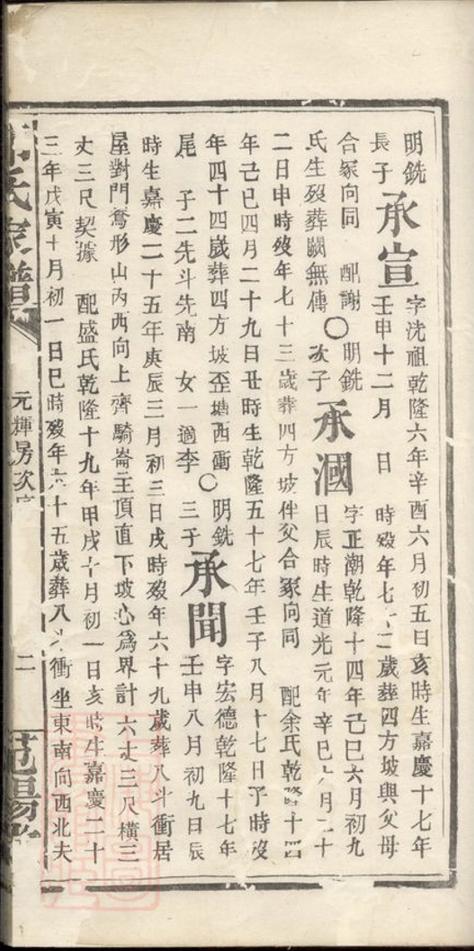 明銑
長子承宣字沈祖乾隆六年辛酉六月初五日亥時生嘉慶十七年
壬申十二月 日 時歿年七十二歲葬四方坡與父母
合冢向同 配謝
氏生歿葬闕無傳〇明銑
次子承漍字正潮乾隆十四年己巳六月初九
日辰時生道光元年辛巳 月二十
二日申時歿年七十三歲葬四方坡伴父合冢向同 配余氏乾隆十四
年己巳四月二十九日丑時生乾隆五十七年壬子八月十七日予時歿
年四十四歲葬四方坡歪塘西衝〇明銑
尾 子二先斗先南 女一適李 三子承聞字宏德乾隆十七年
壬申八月初九日辰
時生嘉慶二十五年庚辰三月初三日戌時歿年六十九歲葬八斗衝居
屋對門鴛形山內西向上齊騎崙主頂直下坡心為界計六丈三尺橫三
丈三尺契據 配盛氏乾隆十九年甲戌十月初一日亥時生嘉慶二十
三年戊寅十月初一日巳時歿年六十五歲葬八斗衝坐東南向西北夫
氏家譜
元輝房次
二
范陽